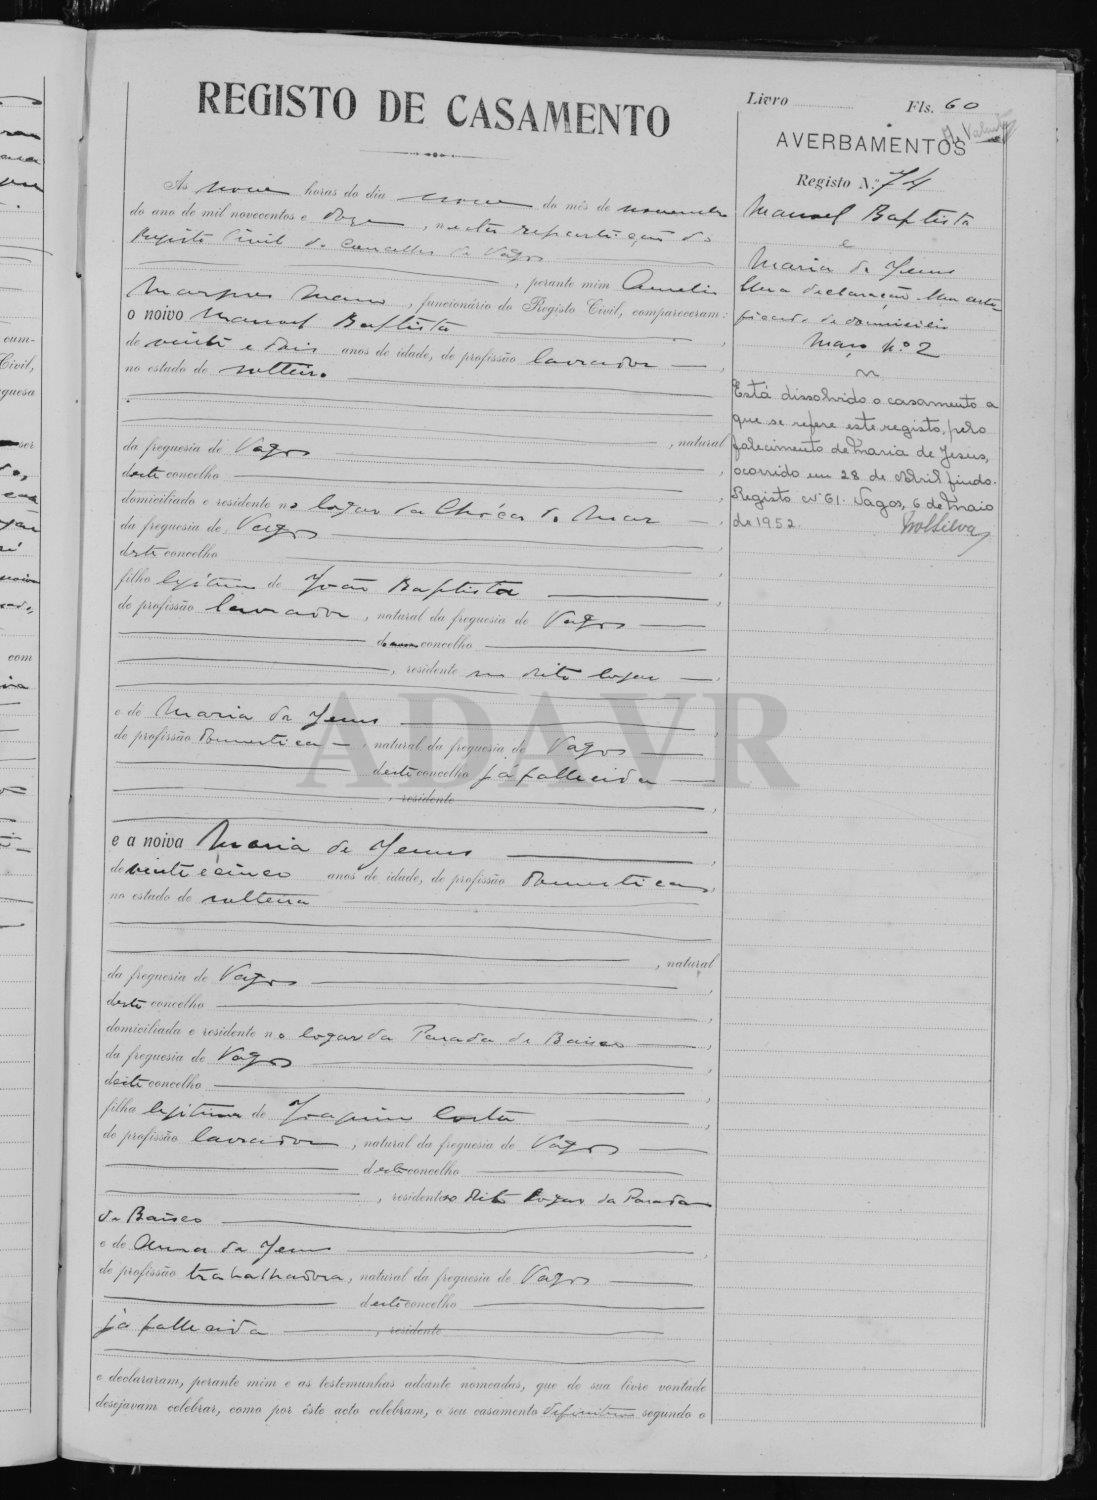 REGISTO DE CASAMENTO
Livro
Fls. 60
AVERBAMENTOS
Registo N.º 74
Manoel Baptista
e
Maria de Jesus
Uma declaração. Um certi-
ficado de domicilio
Março n.º 2
Está dissolvido o casamento a
que se refere este registo, pelo
falecimento de Maria de Jesus,
ocorrido em 28 de Abril findo.
Registo nº 61. Vagos, 6 de Maio
de 1952.
Às nove horas do dia nove do mês de novembro
do ano de mil novecentos e doze, nesta repartição do
Registo Civil do Concelho de Vagos
, perante mim Amelio
Marques Mano, funcionário do Registo Civil, compareceram:
o noivo Manoel Baptista
de vinte e dois anos de idade, de profissão lavrador
no estado de solteiro
, natural
da freguesia de Vagos
deste concelho
domiciliado e residente no logar da Chóca do Mar
da freguesia de Vagos
deste concelho
filho legitimo de João Baptista
de profissão lavrador, natural da freguesia de Vagos
concelho
, residente no dito logar
e de Maria de Jesus
de profissão domestica, natural da freguesia de Vagos
deste concelho já fallecida
, residente
e a noiva Maria de Jesus
de vinte e cinco anos de idade, de profissão domestica
no estado de solteira
, natural
da freguesia de Vagos
deste concelho
domiciliada e residente no logar da Parada de Baixo
da freguesia de Vagos
deste concelho
filha legitima de Joaquim Costa
de profissão lavrador, natural da freguesia de Vagos
deste concelho
, residente no dito logar da Parada
de Baixo
e de Anna de Jesus
de profissão trabalhadora, natural da freguesia de Vagos
deste concelho
já fallecida, residente
e declararam, perante mim e as testemunhas adiante nomeadas, que de sua livre vontade
desejavam celebrar, como por êste acto celebram, o seu casamento definitivo segundo o
ADAVR